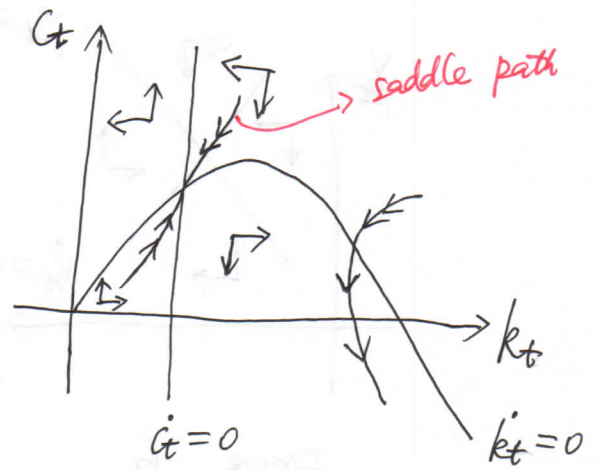 Ct
saddle path
kt
ċt = 0
k̇t = 0